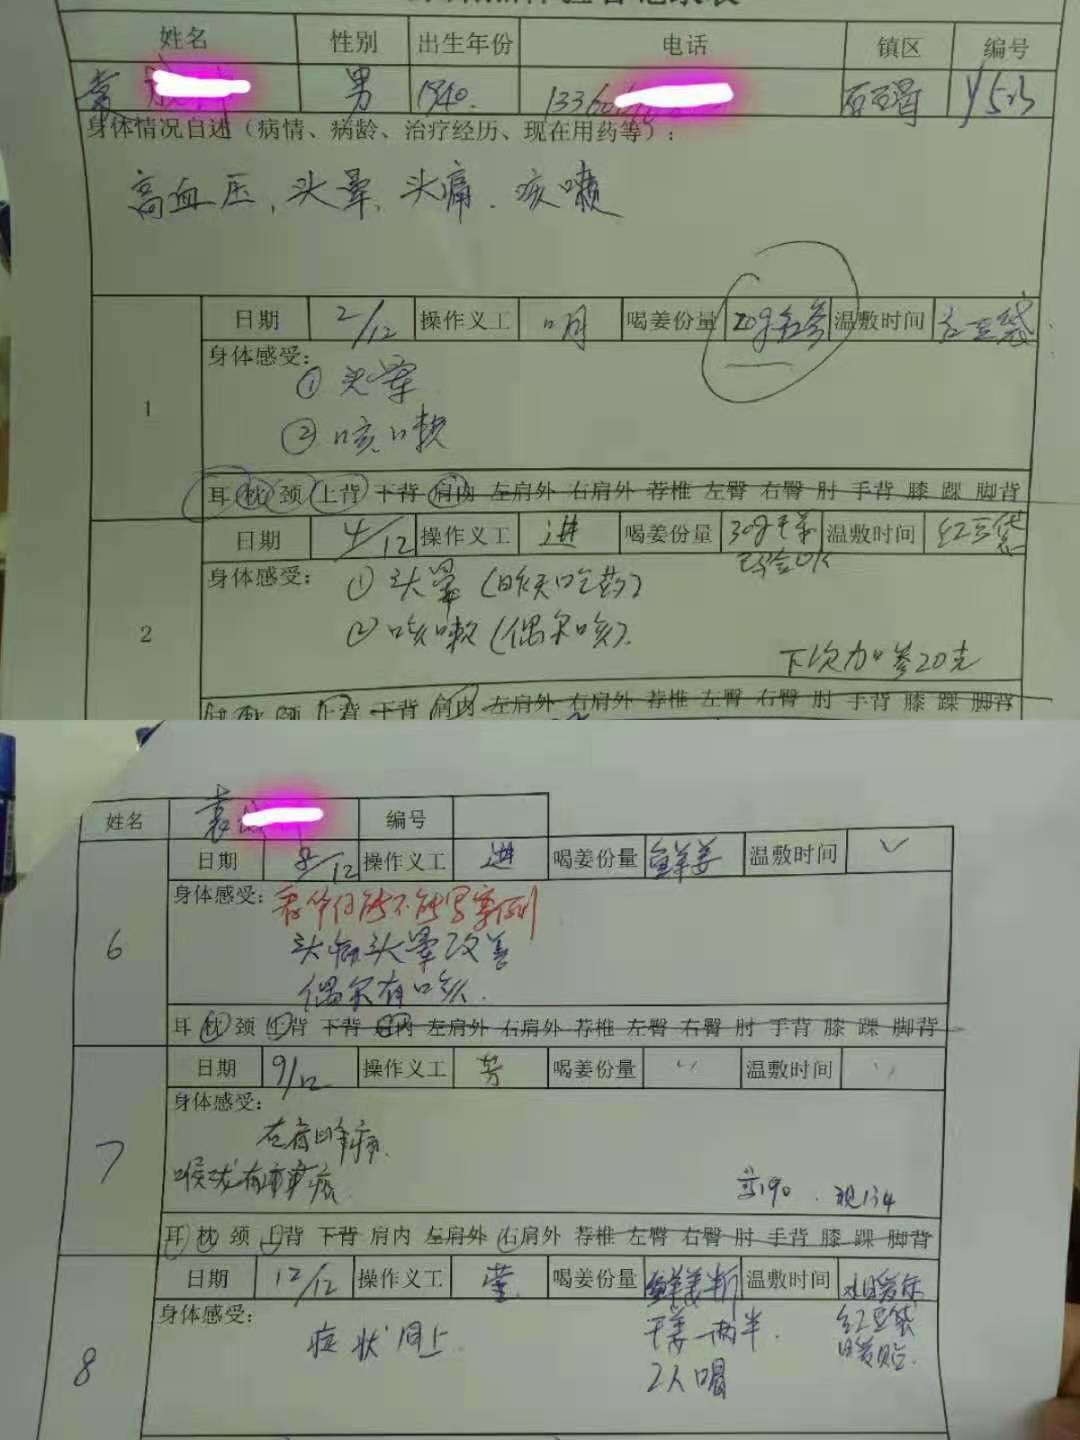 姓名 性别 出生年份 电话 镇区 编号
袁 男 1940. 1336 石
身体情况自述（病情、病龄、治疗经历、现在用药等）：
高血压、头晕、头痛、咳嗽
日期 2/12 操作义工 明 喝姜份量 20g红参 温敷时间 红豆袋
身体感受：
① 头晕
② 咳嗽
1
耳 枕 颈 上背 下背 肩内 左肩外 右肩外 荐椎 左臀 右臀 肘 手背 膝 踝 脚背
日期 4/12 操作义工 进 喝姜份量 30g干姜 温敷时间 红豆袋
身体感受： ① 头晕（昨天吃药）
② 咳嗽（偶尔咳）.
2
下次加参20克
耳 枕 颈 上背 下背 肩内 左肩外 右肩外 荐椎 左臀 右臀 肘 手背 膝 踝 脚背
姓名 袁 编号
日期 8/12 操作义工 进 喝姜份量 鲜姜 温敷时间 ✓
身体感受： 能不能写案例
头痛头晕改善
偶尔有咳.
6
耳 枕 颈 上背 下背 肩内 左肩外 右肩外 荐椎 左臀 右臀 肘 手背 膝 踝 脚背
日期 9/12 操作义工 芳 喝姜份量 温敷时间
身体感受：
7
喉咙有痛
190 . 现134
耳 枕 颈 上背 下背 肩内 左肩外 右肩外 荐椎 左臀 右臀 肘 手背 膝 踝 脚背
日期 12/12 操作义工 莹 喝姜份量 鲜姜半斤 温敷时间
身体感受： 症状同上. 干姜一两半. 红豆袋
2人喝 暖贴.
8